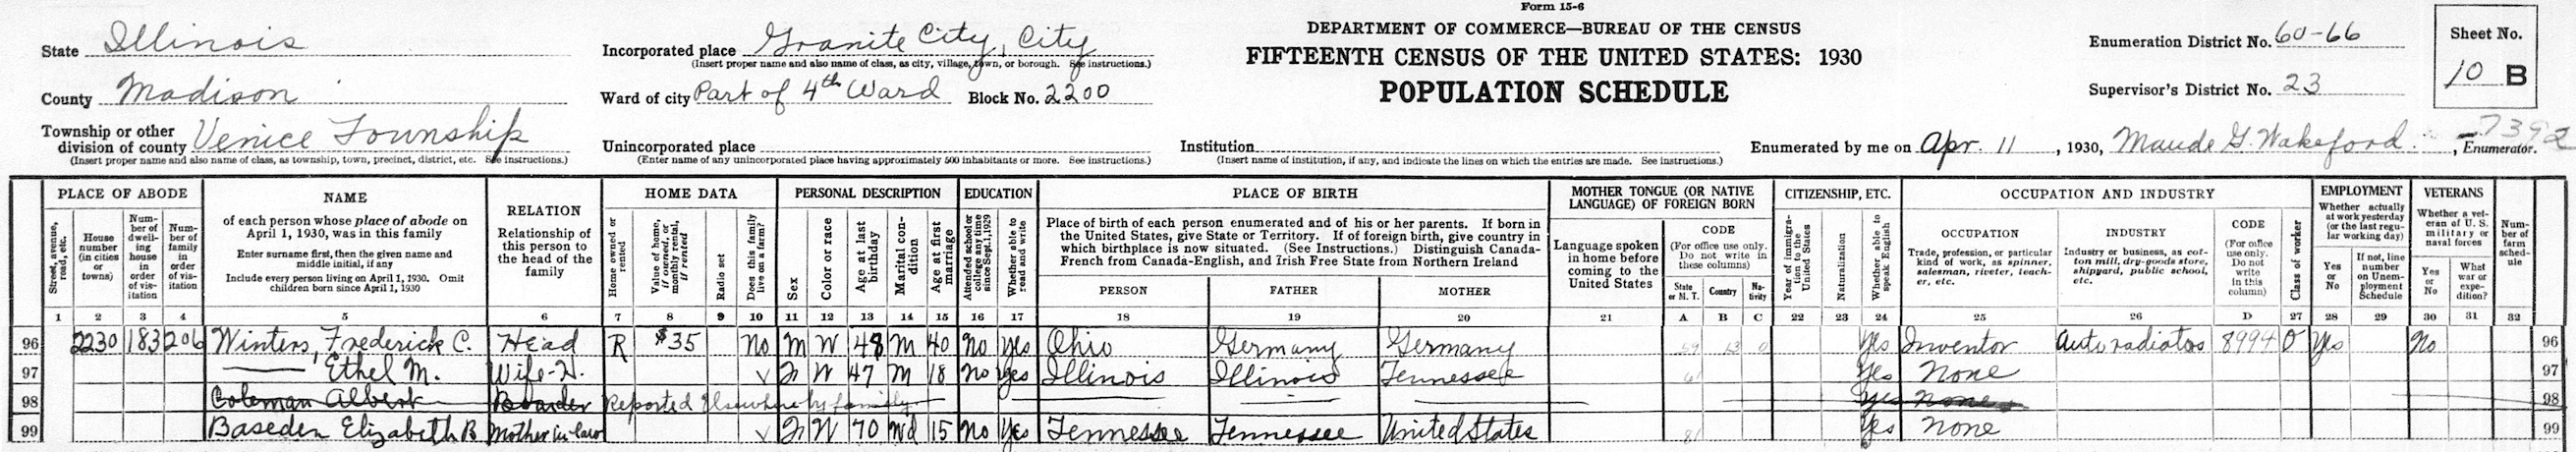 Form 15-6
DEPARTMENT OF COMMERCE—BUREAU OF THE CENSUS
FIFTEENTH CENSUS OF THE UNITED STATES: 1930
POPULATION SCHEDULE
State Illinois
County Madison
Township or other division of county Venice Township
(Insert proper name and also name of class, as township, town, precinct, district, etc. See instructions.)
Incorporated place Granite City, City
(Insert proper name and also name of class, as city, village, town, or borough. See instructions.)
Ward of city Part of 4th Ward Block No. 2200
Unincorporated place
(Enter name of any unincorporated place having approximately 500 inhabitants or more. See instructions.)
Institution
(Insert name of institution, if any, and indicate the lines on which the entries are made. See instructions.)
Enumeration District No. 60-66
Supervisor's District No. 23
Sheet No.
10 B
Enumerated by me on Apr. 11, 1930, Maude G. Wakeford, Enumerator.
PLACE OF ABODE
Street, avenue, road, etc.
House number (in cities or towns)
Number of dwelling house in order of visitation
Number of family in order of visitation
NAME
of each person whose place of abode on April 1, 1930, was in this family
Enter surname first, then the given name and middle initial, if any
Include every person living on April 1, 1930. Omit children born since April 1, 1930
RELATION
Relationship of this person to the head of the family
HOME DATA
Home owned or rented
Value of home, if owned, or monthly rental, if rented
Radio set
Does this family live on a farm?
PERSONAL DESCRIPTION
Sex
Color or race
Age at last birthday
Marital condition
Age at first marriage
EDUCATION
Attended school or college any time since Sept. 1, 1929
Whether able to read and write
PLACE OF BIRTH
Place of birth of each person enumerated and of his or her parents. If born in the United States, give State or Territory. If of foreign birth, give country in which birthplace is now situated. (See Instructions.) Distinguish Canada-French from Canada-English, and Irish Free State from Northern Ireland
PERSON
FATHER
MOTHER
MOTHER TONGUE (OR NATIVE LANGUAGE) OF FOREIGN BORN
Language spoken in home before coming to the United States
CODE
(For office use only. Do not write in these columns)
State or M. T.
Country
Nativity
CITIZENSHIP, ETC.
Year of immigration to the United States
Naturalization
Whether able to speak English
OCCUPATION AND INDUSTRY
OCCUPATION
Trade, profession, or particular kind of work, as spinner, salesman, riveter, teacher, etc.
INDUSTRY
Industry or business, as cotton mill, dry-goods store, shipyard, public school, etc.
CODE
(For office use only. Do not write in this column)
Class of worker
EMPLOYMENT
Whether actually at work yesterday (or the last regular working day)
Yes or No
If not, line number on Unemployment Schedule
VETERANS
Whether a veteran of U. S. military or naval forces
Yes or No
What war or expedition?
Number of farm schedule
1 2 3 4 5 6 7 8 9 10 11 12 13 14 15 16 17 18 19 20 21 A B C 22 23 24 25 26 D 27 28 29 30 31 32
96 2230 183 206 Winters, Frederick C. Head R $35 No M W 48 M 40 No Yes Ohio Germany Germany 59 13 0 Yes Inventor Auto radiators 8994 O Yes No 96
97 —— Ethel M. Wife-H. V F W 47 M 18 No Yes Illinois Illinois Tennessee 61 Yes None 97
98 Coleman Albert Boarder Reported Elsewhere by family Yes None 98
99 Baseden Elizabeth B Mother in law V F W 70 Wd 15 No Yes Tennessee Tennessee United States 81 Yes None 99